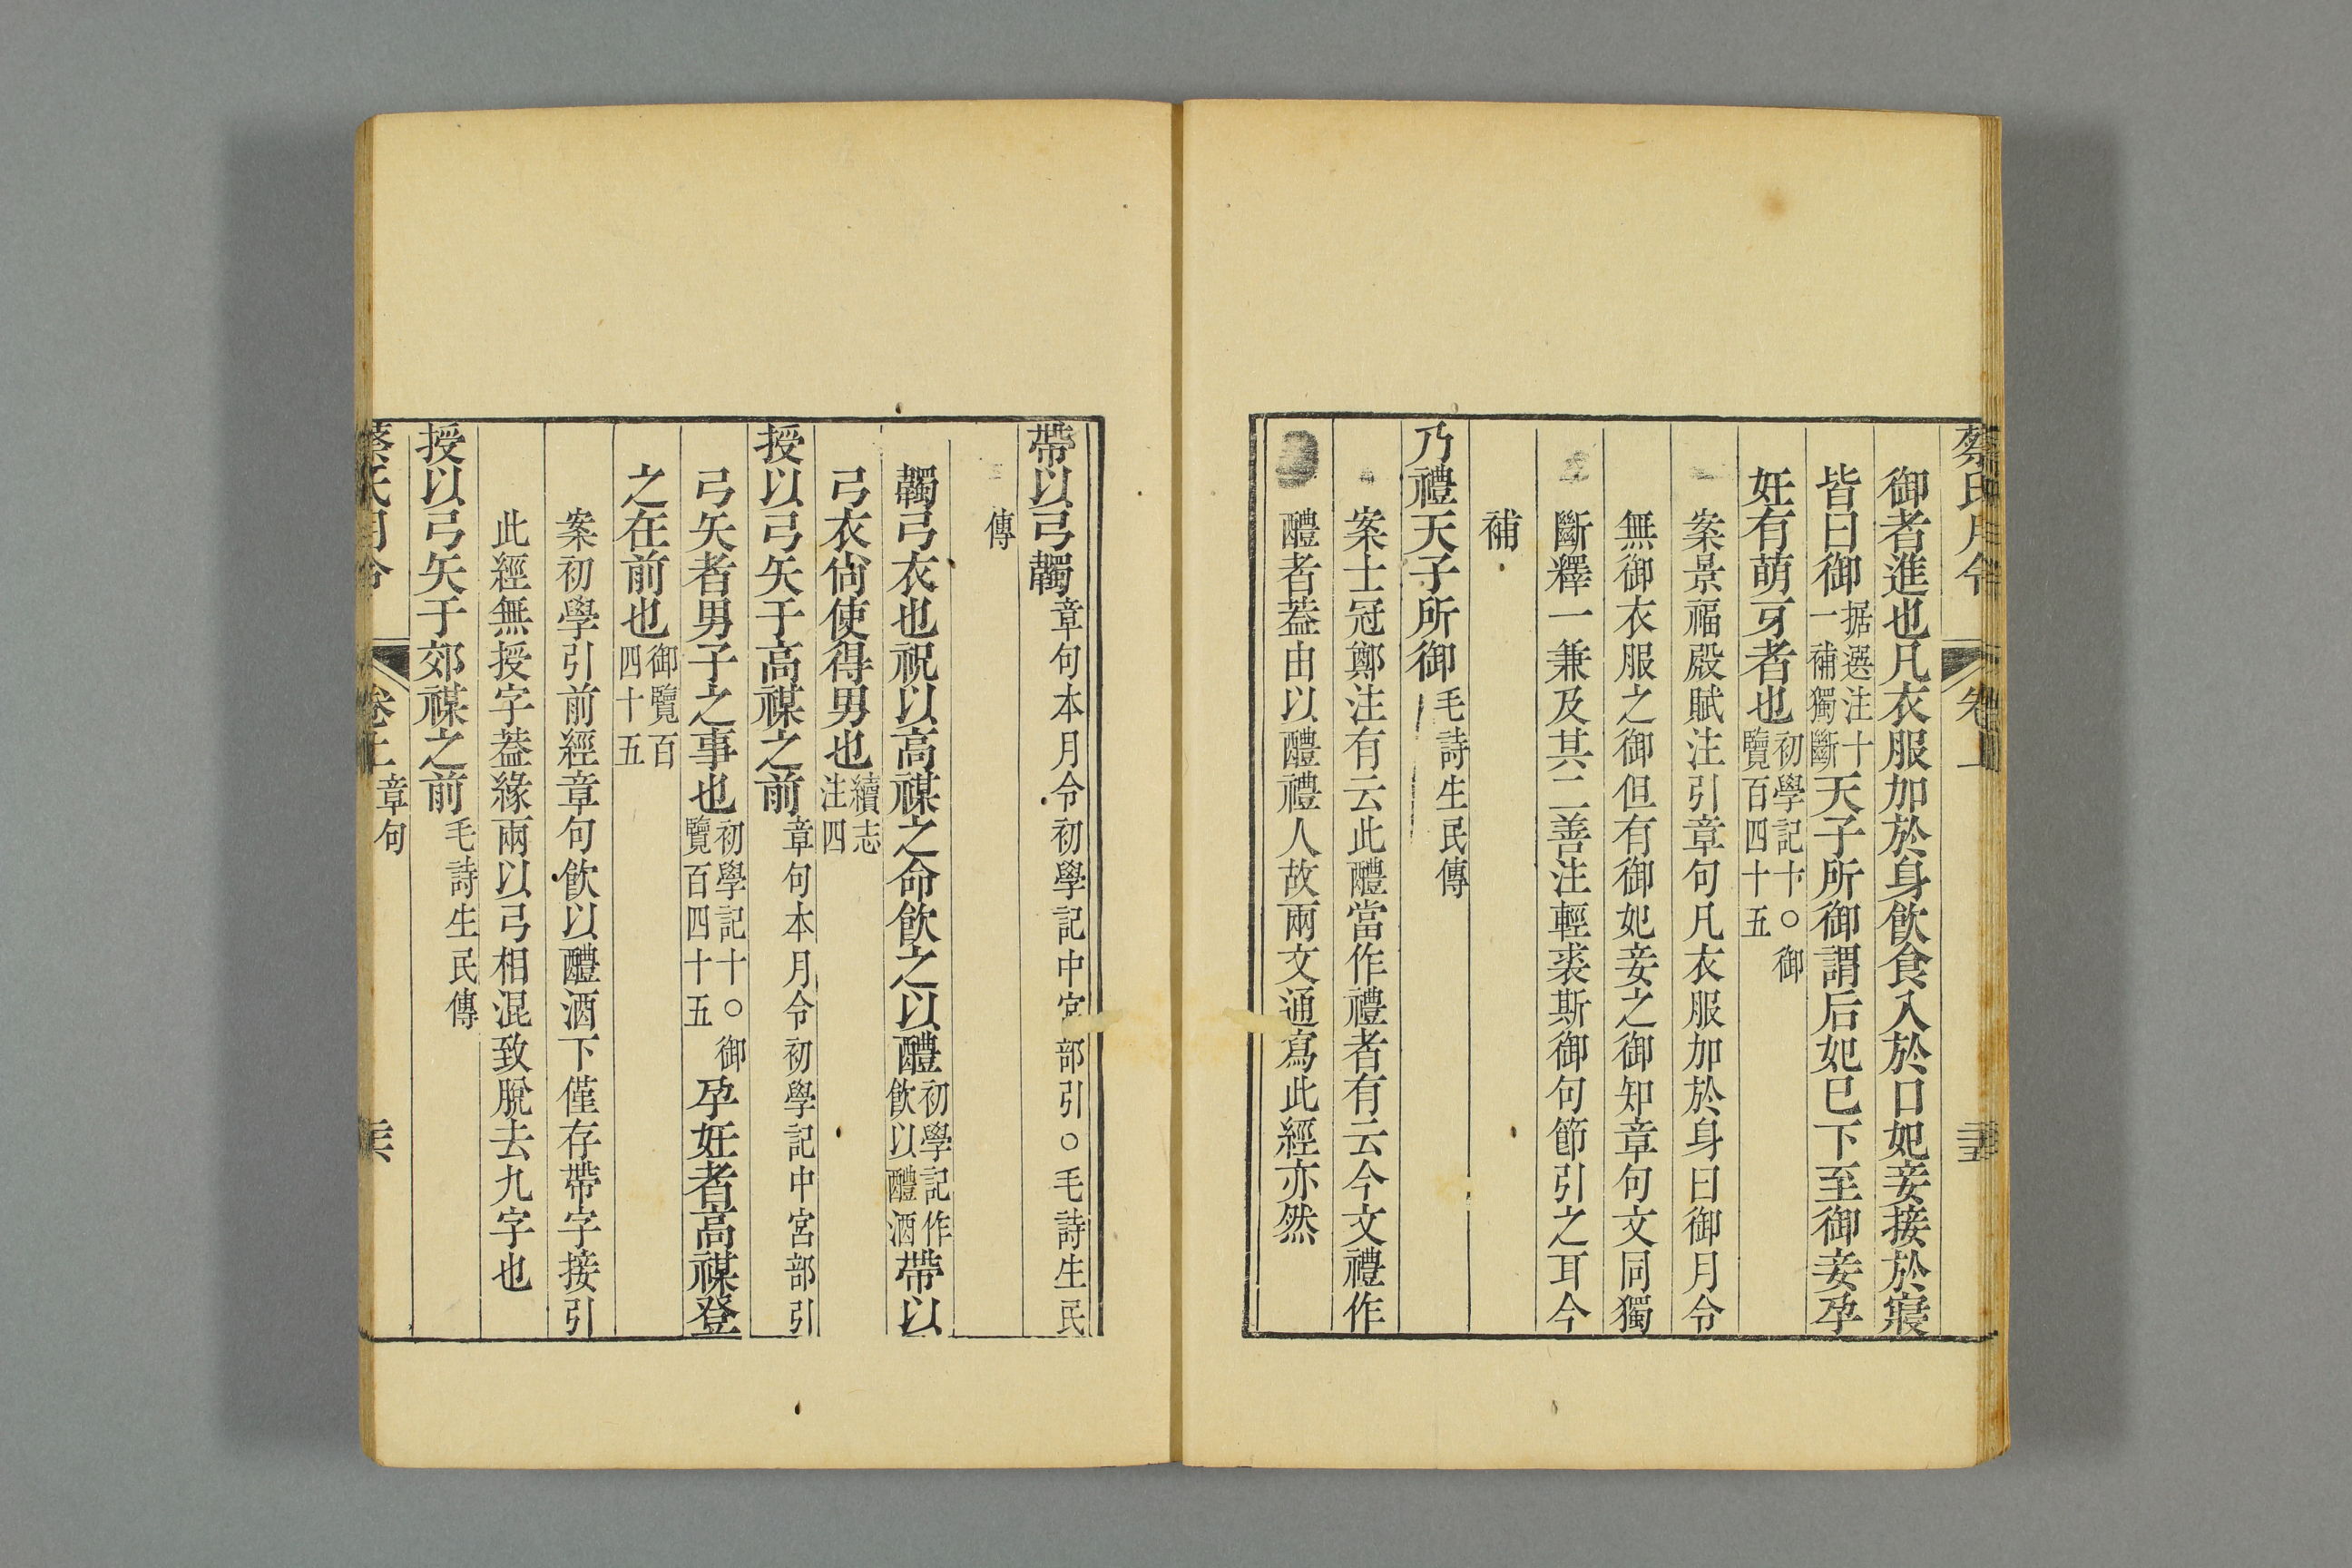 蔡氏月令 卷上
御者進也凡衣服加於身飲食入於口妃妾接於寢
皆曰御据選注十一補獨斷天子所御謂后妃巳下至御妾孕
妊有萌芽者也初學記十〇御覽百四十五
案景福殿賦注引章句凡衣服加於身曰御月令
無御衣服之御但有御妃妾之御知章句文同獨
斷釋一兼及其二善注輕裘斯御句節引之耳今
補
乃禮天子所御毛詩生民傳
案士冠鄭注有云此醴當作禮者有云今文禮作
醴者蓋由以醴禮人故兩文通寫此經亦然
帶以弓韣章句本月令初學記中宮部引〇毛詩生民
傳
韣弓衣也祝以高禖之命飲之以醴初學記作飲以醴酒帶以
弓衣尙使得男也續志注四
授以弓矢于高禖之前章句本月令初學記中宮部引
弓矢者男子之事也初學記十〇御覽百四十五孕妊者高禖登
之在前也御覽百四十五
案初學引前經章句飲以醴酒下僅存帶字接引
此經無授字蓋緣兩以弓相混致脫去九字也
授以弓矢于郊禖之前毛詩生民傳
蔡氏月令 卷上 章句